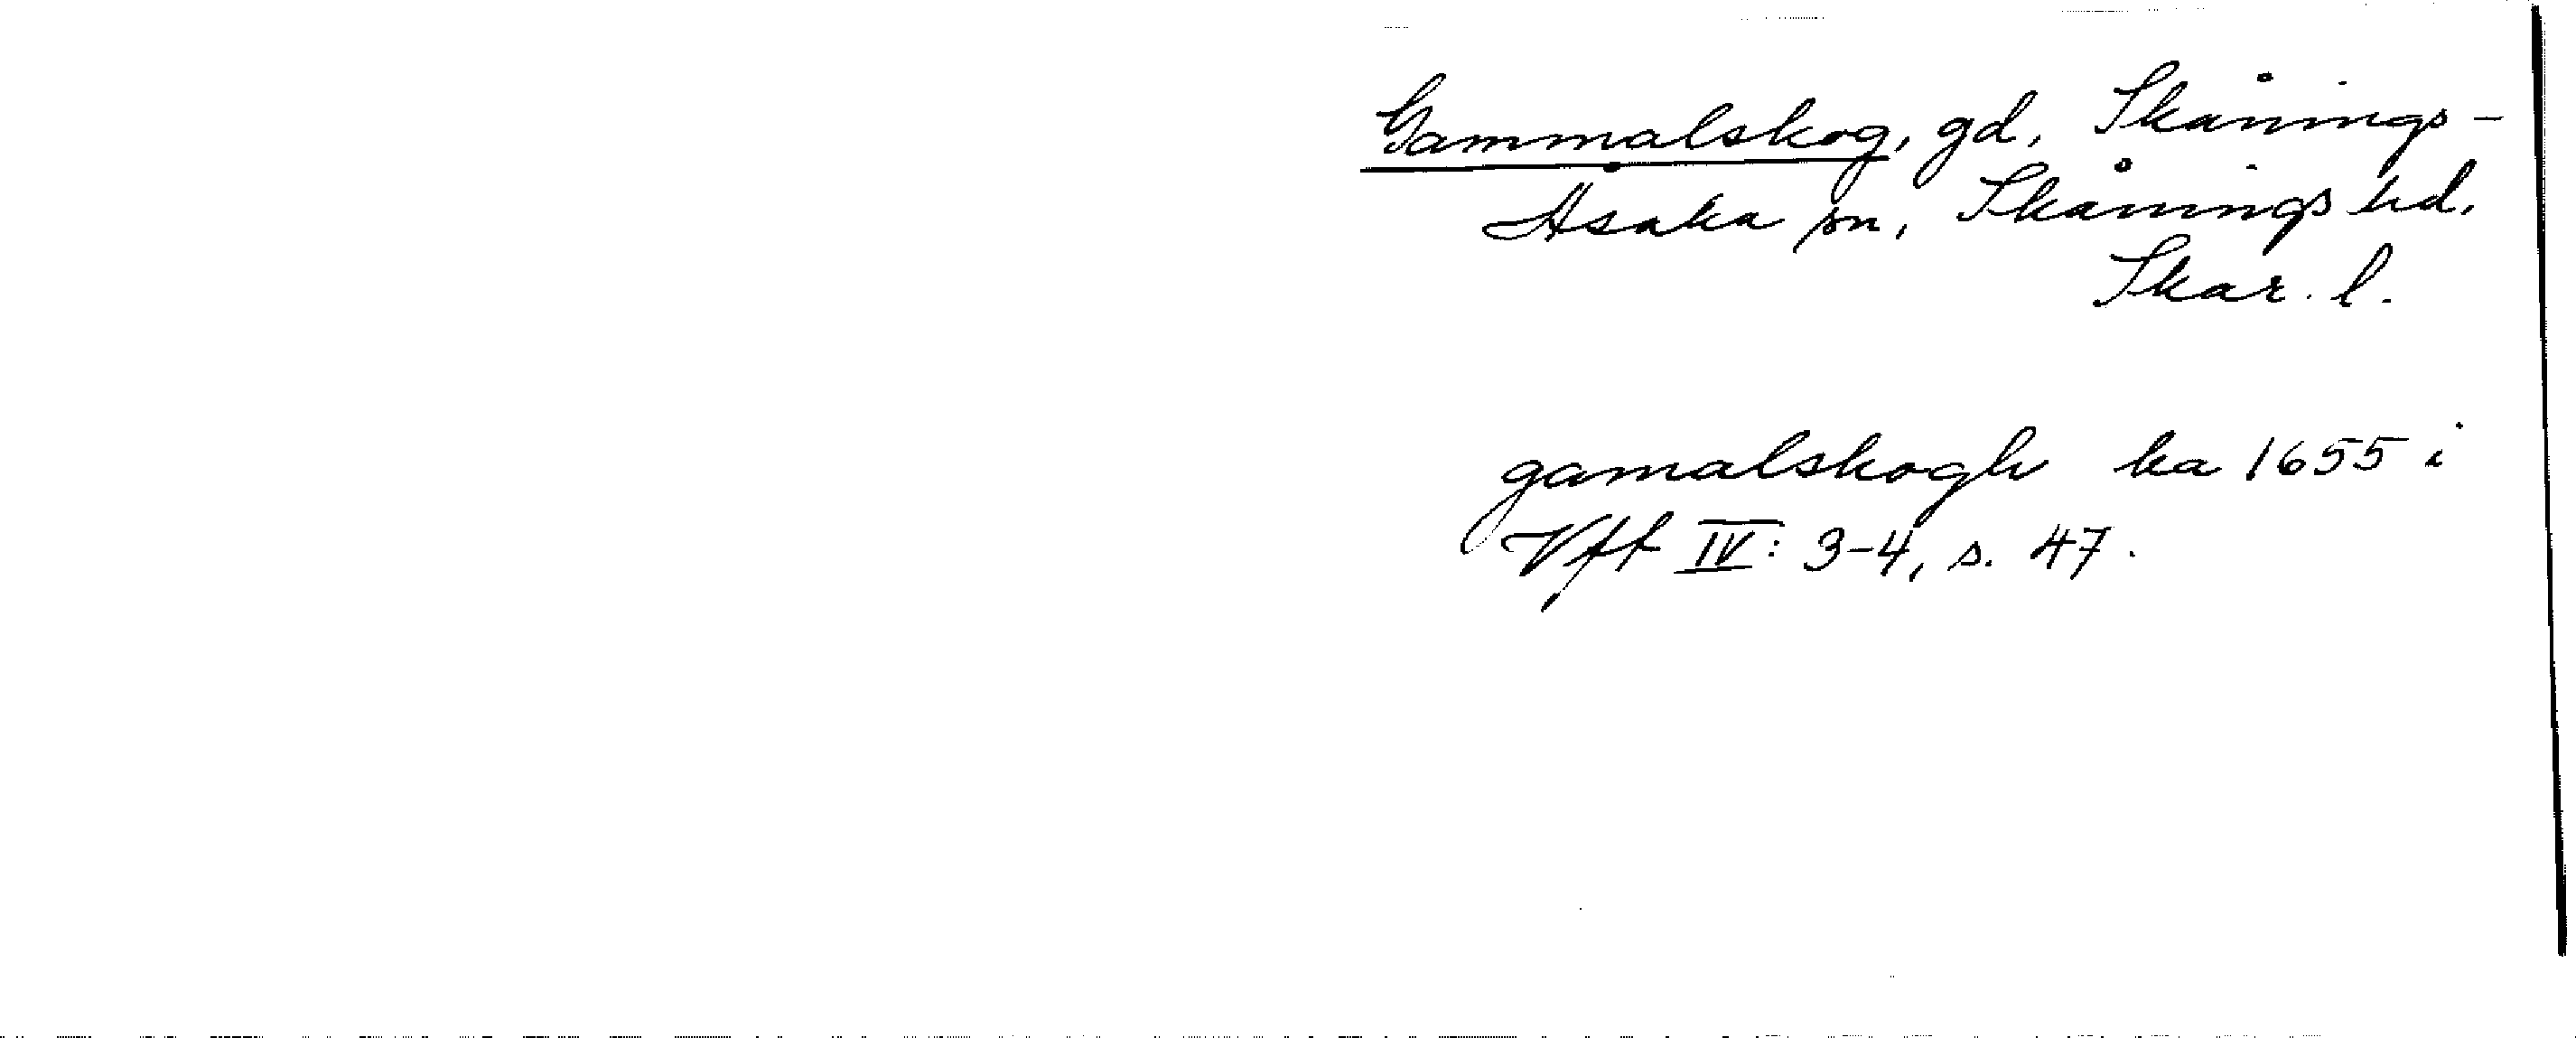 Gammalskog, gd, Skånings-
Åsaka sn, Skånings hd,
Skar. l.
gamalskogh ka 1655 i
Vft IV: 3-4, s. 47.